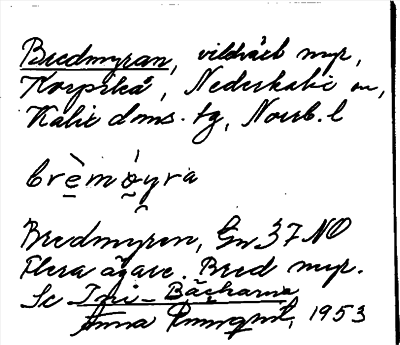 Bredmyran, vildväxt myr,
Korpikå, Nederkalix sn,
Kalix doms. tg, Norrb. l
brèmo̰yra
Bredmyren, Gn 37 NO
Flera ägare. Bred myr.
Se Ini-Bäckarna
Anna 1953